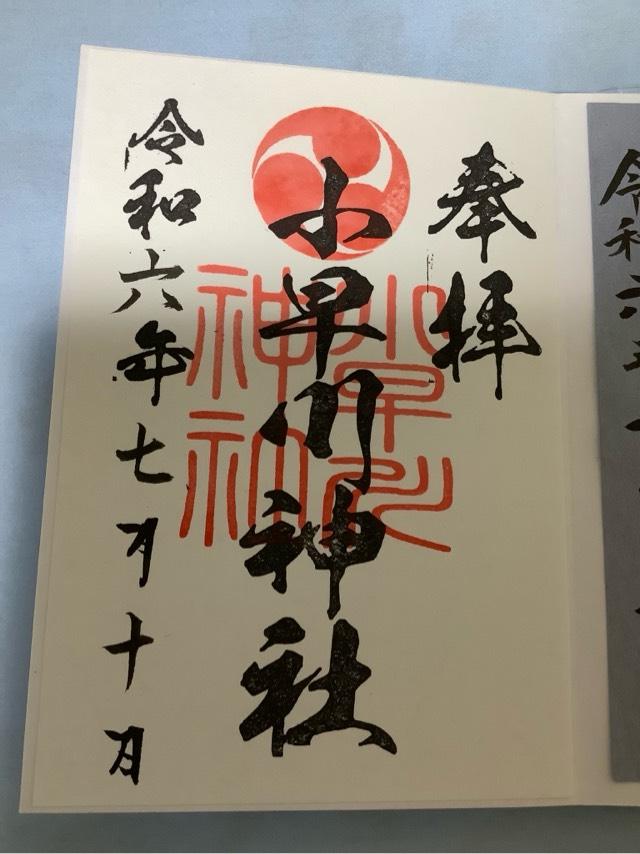 令和六年
奉拝
小早川神社
小早川
神社
令和六年七月十日